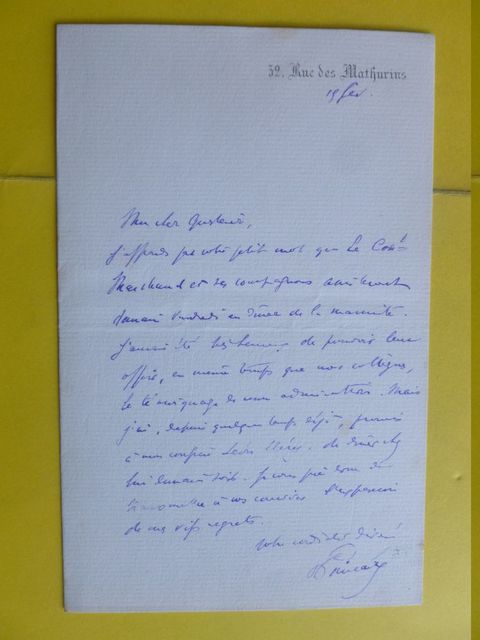 52. Rue des Mathurins
19 fev.
Mon cher
J'apprends par votre petit mot que le Com.t
Marchand et ses compagnons assisteront
demain vendredi au dîner de la marmite.
J'aurais été très heureux de pouvoir leur
offrir, en même temps que nos collègues,
le témoignage de mon admiration. Mais
j'ai, depuis quelque temps déjà, promis
à mon confrère de dîner chez
lui demain soir. Je vous prie donc de
transmettre à nos convives l'expression
de mes vifs regrets.
Votre cordialement dévoué
Poincaré